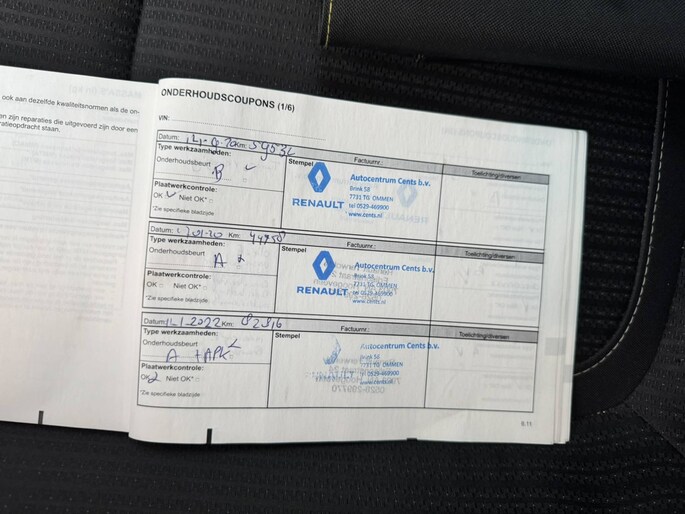 ook aan dezelfde kwaliteitsnormen als de on-
en zijn reparaties die uitgevoerd zijn door een
ratieopdracht staan.
ONDERHOUDSCOUPONS (1/6)
VIN:
Datum: Km:
Type werkzaamheden:
Onderhoudsbeurt
B
Plaatwerkcontrole:
OK Niet OK*
*Zie specifieke bladzijde
Stempel
Factuurnr.:
RENAULT
Autocentrum Cents b.v.
Brink 58
7731 TG OMMEN
tel 0529-469900
www.cents.nl
Toelichting/diversen
Datum: 01-20 Km:
Type werkzaamheden:
Onderhoudsbeurt
A
Plaatwerkcontrole:
OK Niet OK*
*Zie specifieke bladzijde
Stempel
Factuurnr.:
RENAULT
Autocentrum Cents b.v.
Brink 58
7731 TG OMMEN
tel 0529-469900
www.cents.nl
Toelichting/diversen
Datum: 2022 Km:
Type werkzaamheden:
Onderhoudsbeurt
A + APK
Plaatwerkcontrole:
OK Niet OK*
*Zie specifieke bladzijde
Stempel
Factuurnr.:
Autocentrum Cents b.v.
Brink 58
7731 TG OMMEN
tel 0529-469900
www.cents.nl
Toelichting/diversen
6.11